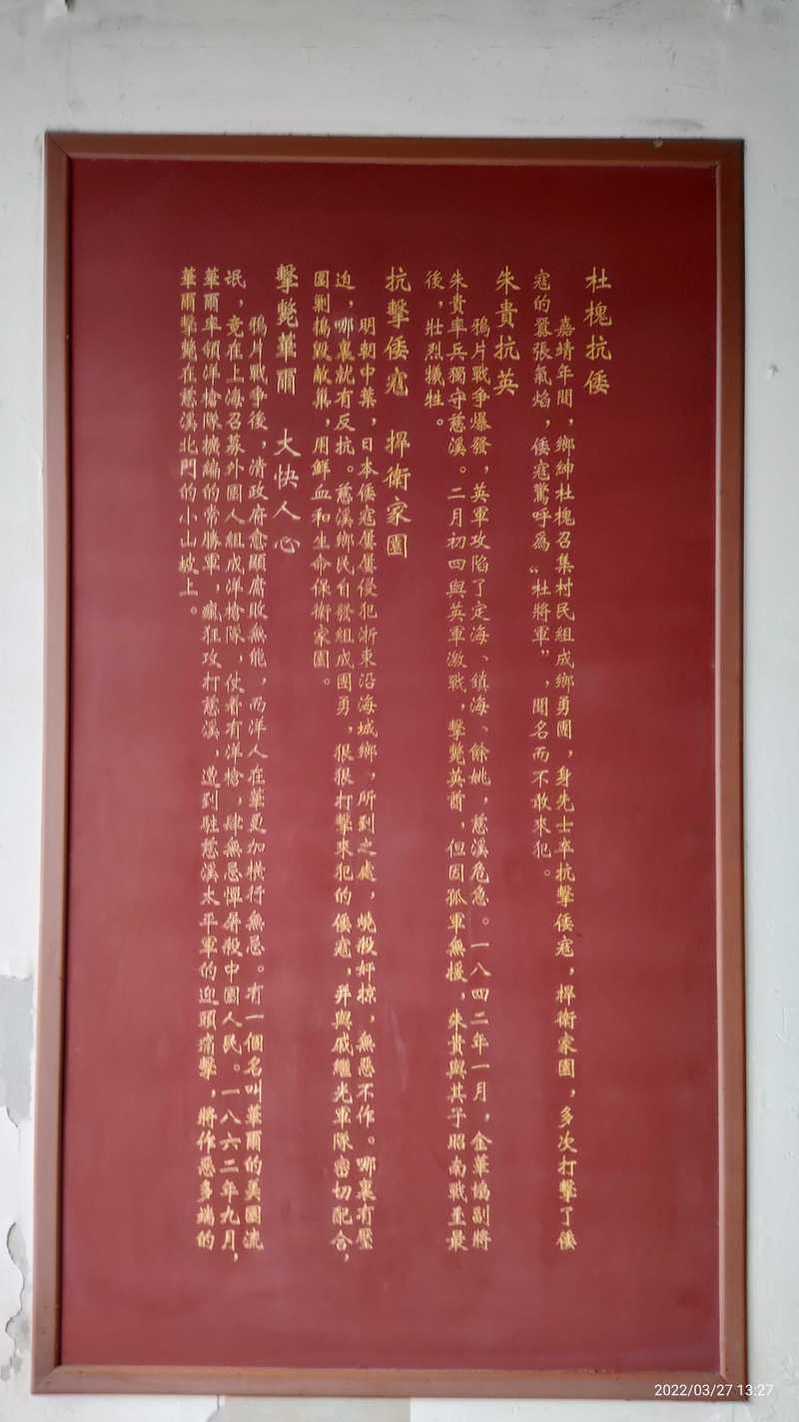 杜槐抗倭
嘉靖年間，鄉紳杜槐召集村民組成鄉勇團，身先士卒抗擊倭寇，捍衛家園，多次打擊了倭
寇的囂張氣焰，倭寇驚呼爲“杜將軍”，聞名而不敢來犯。
朱貴抗英
鴉片戰争爆發，英軍攻陷了定海、鎮海、餘姚，慈溪危急。一八四二年一月，金華協副將
朱貴率兵獨守慈溪。二月初四與英軍激戰，擊斃英酋，但因孤軍無援，朱貴與其子昭南戰至最
後，壯烈犧牲。
抗擊倭寇 捍衛家園
明朝中葉，日本倭寇屢屢侵犯浙東沿海城鄉，所到之處，燒殺奸掠，無惡不作。哪裏有壓
迫，哪裏就有反抗。慈溪鄉民自發組成團勇，狠狠打擊來犯的倭寇，并與戚繼光軍隊密切配合，
圍剿搗毀敵巢，用鮮血和生命保衛家園。
擊斃華爾 大快人心
鴉片戰争後，清政府愈顯腐敗無能，而洋人在華更加横行無忌。有一個名叫華爾的美國流
氓，竟在上海召募外國人組成洋槍隊，仗着有洋槍，肆無忌憚屠殺中國人民。一八六二年九月，
華爾率領洋槍隊擴編的常勝軍，瘋狂攻打慈溪，遭到駐慈溪太平軍的迎頭痛擊，將作惡多端的
華爾擊斃在慈溪北門的小山坡上。
2022/03/27 13:27